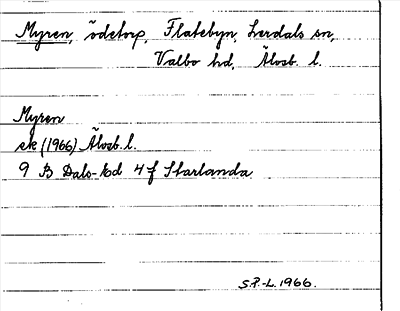 Myren, ödetorp, Flatebyn, Lerdals sn,
Valbo hd, Älvsb. l.
Myren
ek (1966) Älvsb. l.
9 B Dals-Ed 4 f Starlanda
S.P.-L. 1966.